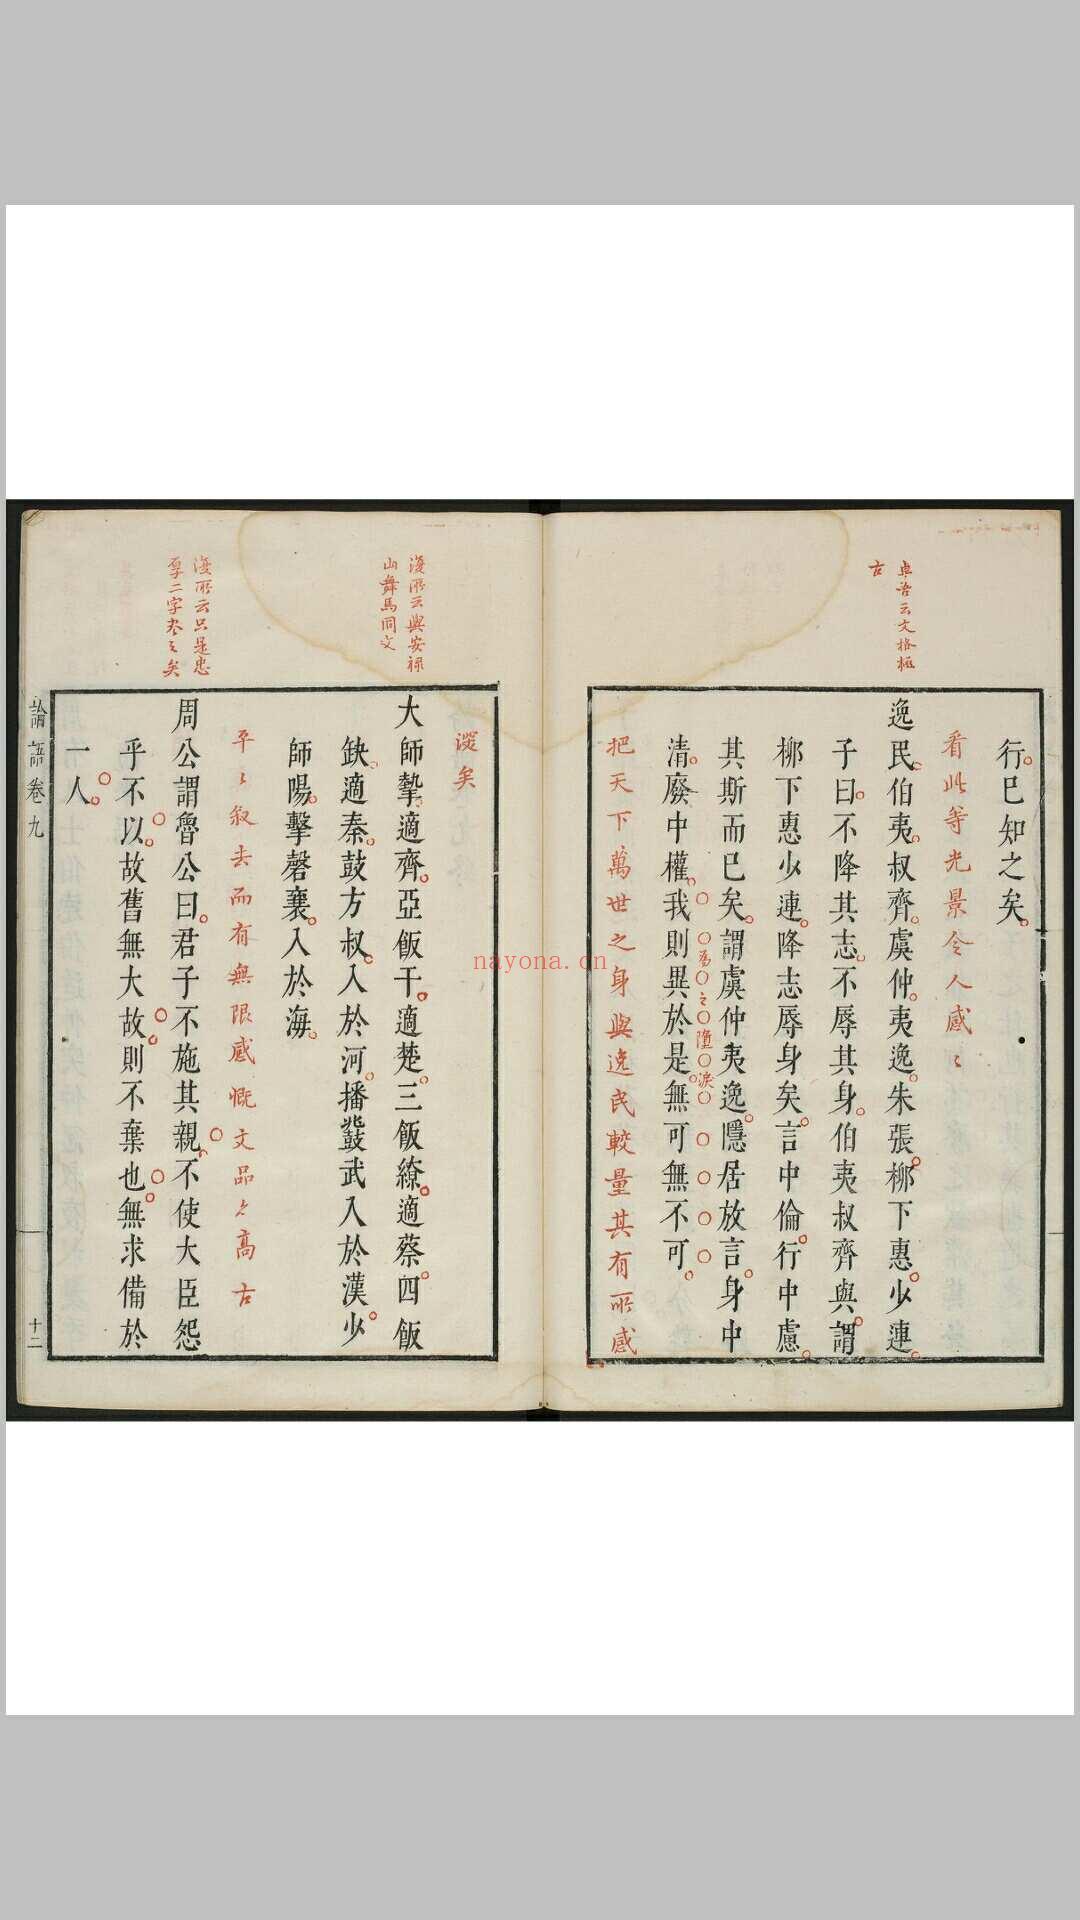 卓吾云文格極
古
行已知之矣
看此等光景令人感〻
逸民伯夷叔齊虞仲夷逸朱張柳下惠少連
子曰不降其志不辱其身伯夷叔齊與謂
柳下惠少連降志辱身矣言中倫行中慮
其斯而已矣謂虞仲夷逸隱居放言身中
為之墮淚
清廢中權我則異於是無可無不可
把天下萬世之身與逸民較量其有所感
復所云與安祿
山舞馬同文
復所云只是忠
厚二字盡之矣
淡矣
大師摯適齊亞飯干適楚三飯繚適蔡四飯
缺適秦鼓方叔入於河播鼗武入於漢少
師陽擊磬襄入於海
平〻敘去而有無限感慨文品〻高古
周公謂魯公曰君子不施其親不使大臣怨
乎不以故舊無大故則不棄也無求備於
一人
論語卷九
十二
nayona.cn